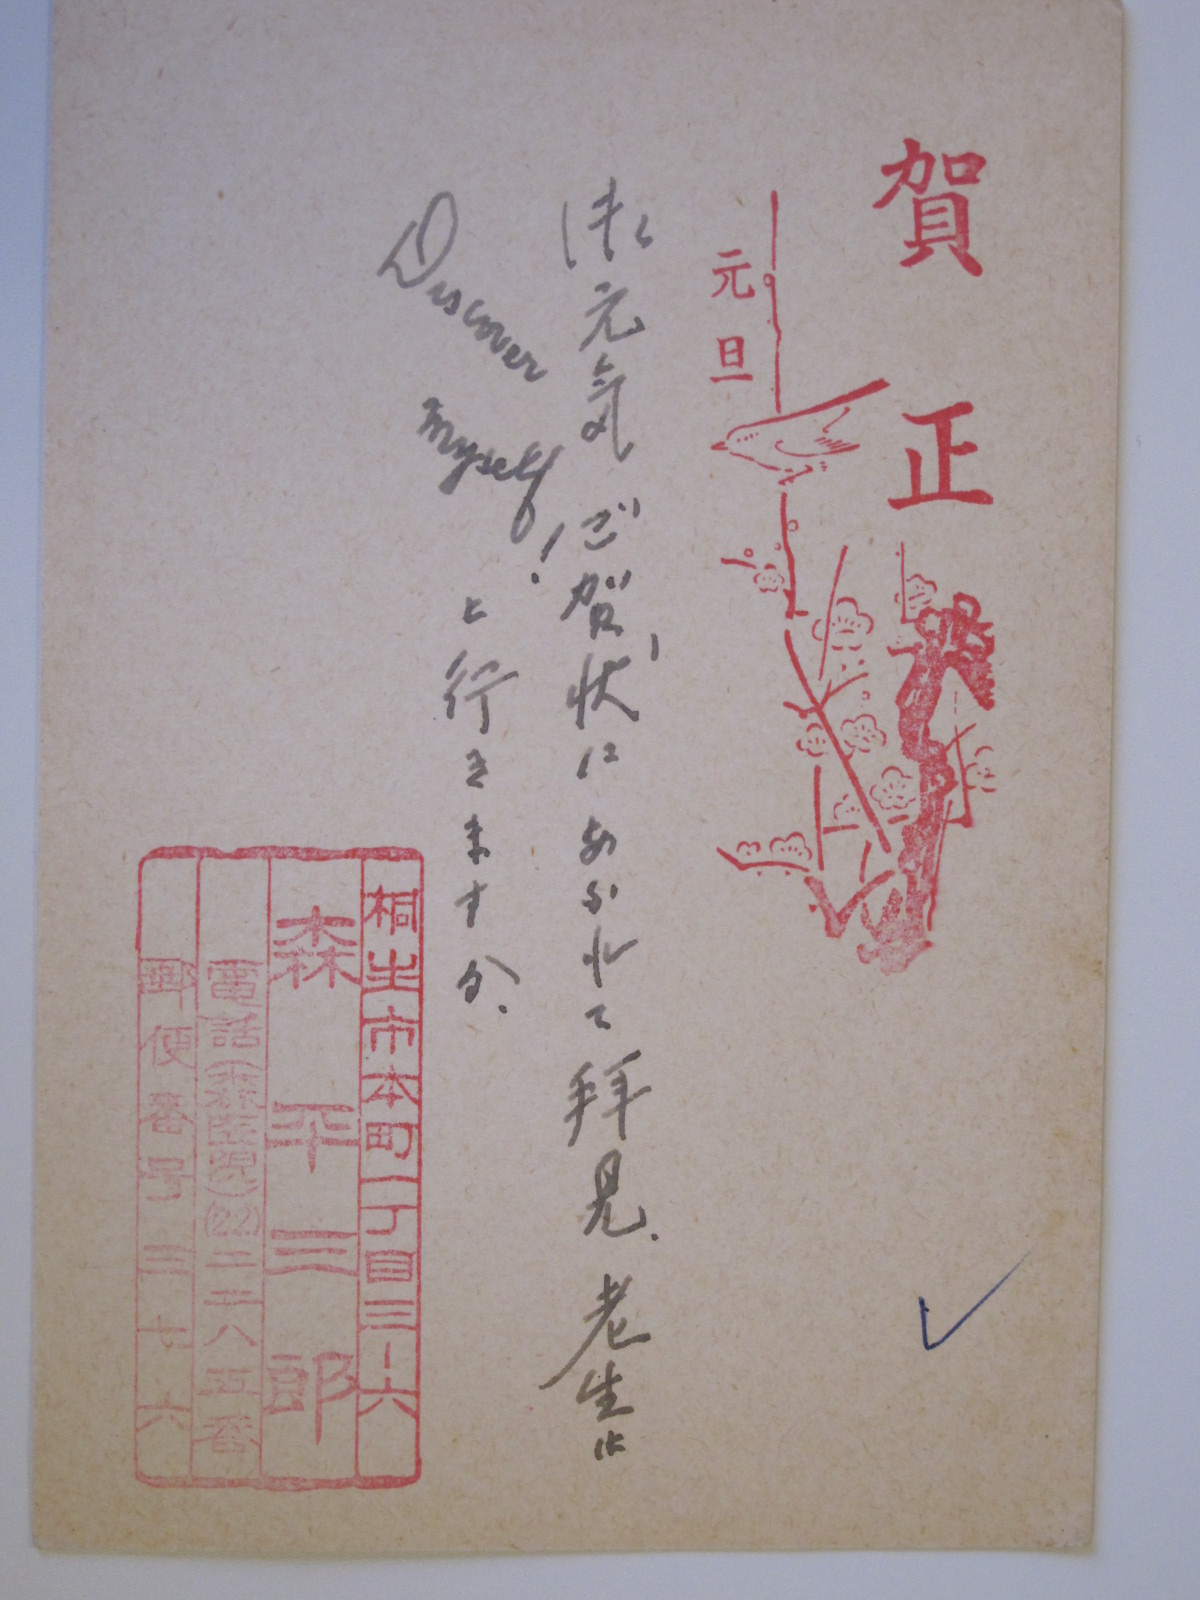 賀正
元旦
御元気なご賀状にあふれて拝見.老生は
Discover
myself!
と行きますか.
桐生市本町一丁目三-六
森平三郎
電話(22)二六八五番
郵便番号三七六